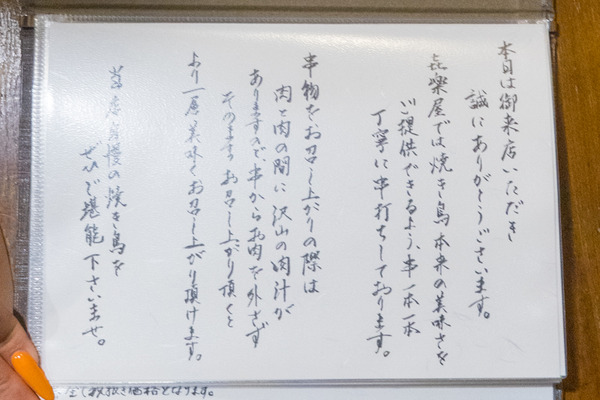 本日は御来店いただき
誠にありがとうございます。
㐂樂屋では焼き鳥本来の美味さを
ご提供できるよう串一本一本
丁寧に串打ちしております。
串物をお召し上がりの際は
肉と肉の間に沢山の肉汁が
ありますので串からお肉を外さず
そのままお召し上がり頂くと
より一層美味くお召し上がり頂けます。
当店自慢の焼き鳥を
ぜひご堪能下さいませ。
税抜き価格となります。